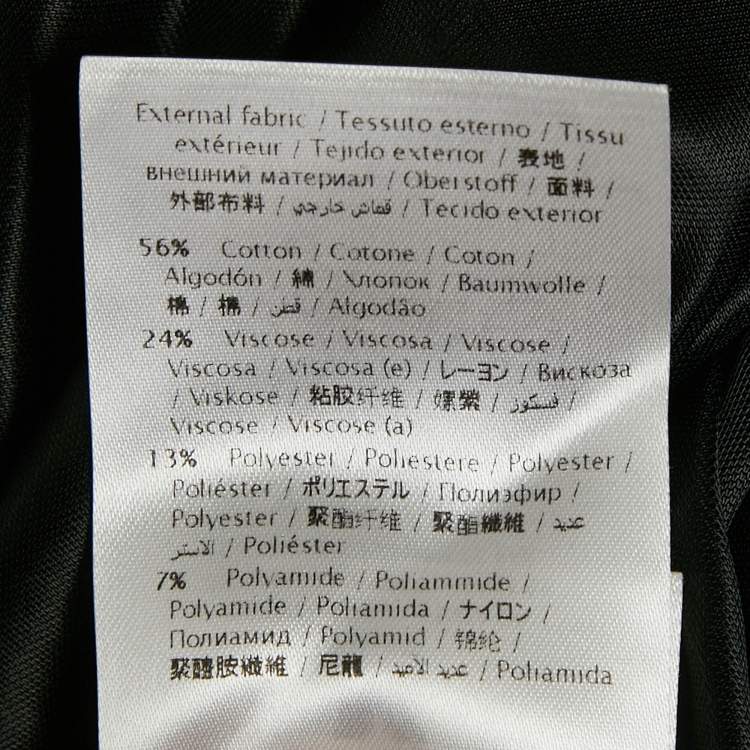 External fabric / Tessuto esterno / Tissu
extérieur / Tejido exterior / 表地 /
внешний материал / Oberstoff / 面料 /
外部布料 / قماش خارجي / Tecido exterior
56% Cotton / Cotone / Coton /
Algodón / 綿 / Хлопок / Baumwolle /
棉 / 棉 / قطن / Algodão
24% Viscose / Viscosa / Viscose /
Viscosa / Viscosa (e) / レーヨン / Вискоза
/ Viskose / 粘胶纤维 / 嫘縈 / فسكوز /
Viscose / Viscose (a)
13% Polyester / Poliestere / Polyester /
Poliéster / ポリエステル / Полиэфир /
Polyester / 聚酯纤维 / 聚酯纖維 / عديد
الاستر / Poliéster
7% Polyamide / Poliammide /
Polyamide / Poliamida / ナイロン /
Полиамид / Polyamid / 锦纶 /
聚醯胺纖維 / 尼龍 / عديد الاميد / Poliamida